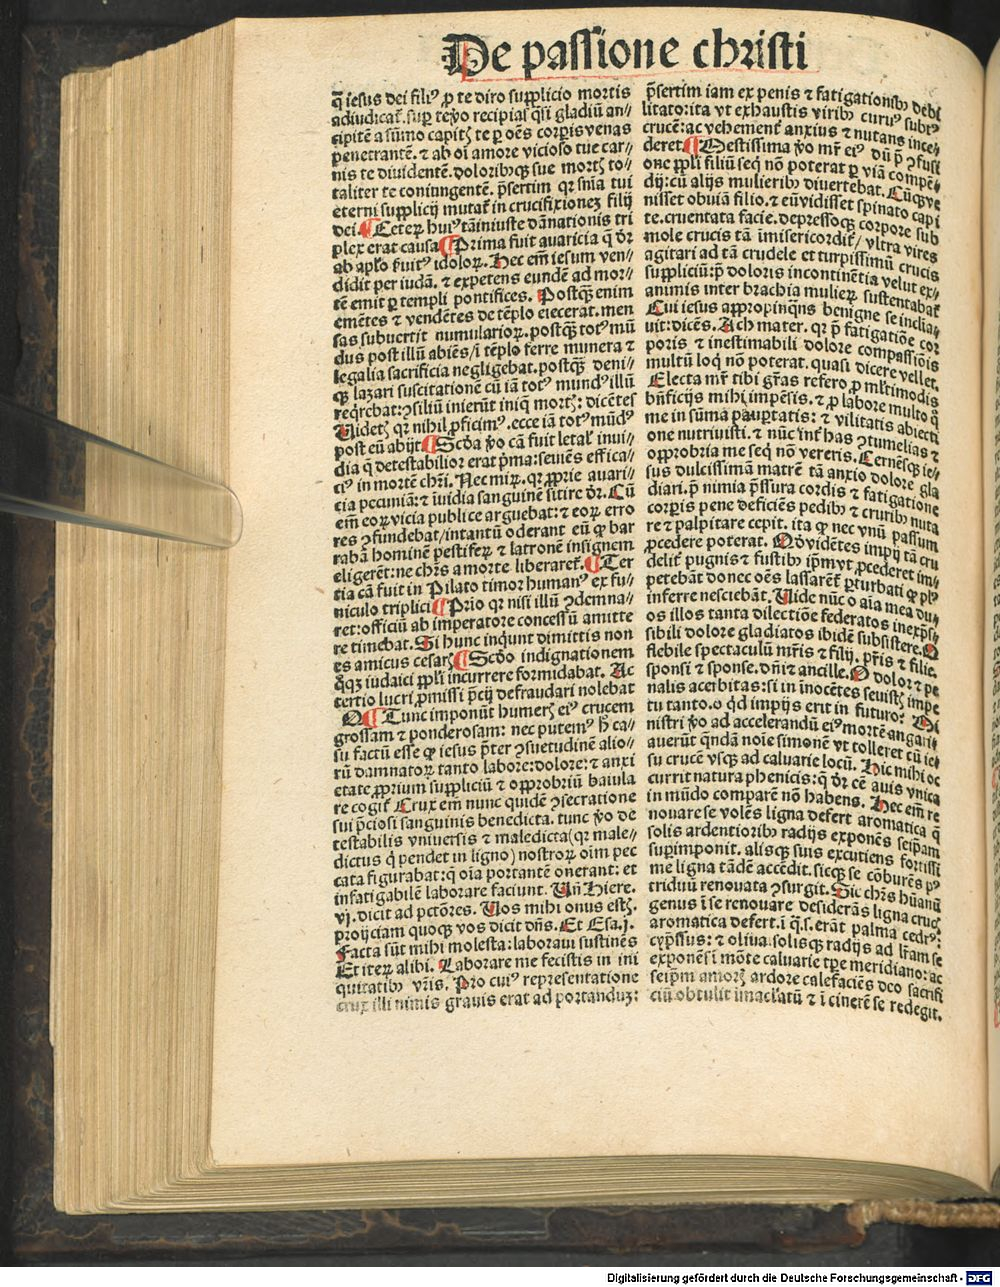 De passione christi
q̄ iesus dei filiꝰ ꝓ te diro supplicio mortis
adiudicat̄. suꝑ te ꝟo recipias q̄si gladiū an⸗
cipitē a sūmo capitꝭ te ꝑ oēs corꝑis venas
penetrantē. ⁊ ab oī amore vicioso tue car⸗
nis te diuidentē. doloribꝰqꝫ sue mortꝭ to⸗
taliter te coniungentē. p̄sertim qꝛ sn̄ia tui
eterni supplicij mutat̄ in crucifixionez filij
dei. ¶ Ceteꝝ huiꝰ tā iniuste dānationis tri
plex erat causa ¶ Prima fuit auaricia q̄ dr̄
ab aplo ẜuitꝰ idoloꝝ. Hec em̄ iesum ven⸗
didit per iudā. ⁊ expetens eundē ad mor⸗
tē emit ꝑ templi pontifices. Postqꝫ enim
emētes ⁊ vendētes de tēplo eiecerat. men
sas subuertit nummularioꝝ. postqꝫ totꝰ mū
dus post illū abiēs/ī tēplo ferre munera ⁊
legalia sacrificia negligebat. postqꝫ deni⸗
qꝫ lazari suscitationē cū iā totꝰ mundꝰ illū
reqͥrebat: ꝯsiliū inierūt iniq̄ mortꝭ: dicētes
Uidetꝭ qꝛ nihil ꝓficimꝰ. ecce iā totꝰ mūdꝰ
post eū abijt ¶ Scd̄a ꝟo cā fuit letal̓ inui⸗
dia q̄ detestabilior erat p̄ma: seuiēs effica⸗
ciꝰ in mortē chr̄i. Nec miꝝ. qꝛ ꝓprie auari⸗
cia pecuniā: ⁊ īuidia sanguinē sitire dr̄. Cū
em̄ eoꝝ vicia publice arguebat: ⁊ eoꝝ erro
res ꝯfundebat/intantū oderant eū ꝙ bar
rabā hominē pestifeꝝ ⁊ latronē insignem
eligerēt: ne chr̄s a morte liberaret̄. ¶ Ter
tia cā fuit in Pilato timor humanꝰ ex fu⸗
niculo triplici ¶ Prīo qꝛ nisi illū ꝯdemna⸗
ret: officiū ab imperatore concessū amitte
re timebat. Si hunc inqͥunt dimittis non
es amicus cesarꝭ ¶ Scd̄o indignationem
qͦqꝫ iudaici ppl̓i incurrere formidabat. Ac
tertio lucri ꝓmissi p̄cij defraudari nolebat
O ¶ Tunc imponūt humerꝭ eiꝰ crucem
grossam ⁊ ponderosam: nec putemꝰ h̄ ca⸗
su factū esse ꝙ iesus p̄ter ꝯsuetudinē alio⸗
rū damnatoꝝ tanto labore: dolore: ⁊ anxi
etate ꝓprium suppliciū ⁊ opprobriū baiula
re cogit̄ Crux em̄ nunc quidē ꝯsecratione
sui p̄ciosi sanguinis benedicta. tunc ꝟo de
testabilis vniuersis ⁊ maledicta (qꝛ male⸗
dictus qͥ pendet in ligno) nostroꝝ oīm pec
cata figurabat: q̄ oīa portantē onerant: et
infatigabilē laborare faciunt. Un̄ Hiere.
vj. dicit ad pctōres. Uos mihi onus estꝭ.
proijciam quoqꝫ vos dicit dn̄s. Et Esa. j.
Facta sūt mihi molesta: laboraui sustinēs
Et iteꝝ alibi. Laborare me fecistis in ini
quitatibꝰ vr̄is. Pro cuiꝰ representatione
crux illi nimis grauis erat ad portanduꝫ:
p̄sertim iam ex penis ⁊ fatigationibꝰ debi
litato: ita vt exhaustis viribꝰ curuꝰ subtꝰ
crucē: ac vehement̄ anxius ⁊ nutans ince⸗
deret. ¶ Mestissima ꝟo mr̄ eiꝰ dū p̄ ꝯfusi
one ppl̓i filiū seq̄ nō poterat ꝑ viā compē⸗
dij: cū alijs mulieribꝰ diuertebat. Cūqꝫ ve
nisset obuiā filio. ⁊ eū vidisset spinato capi
te. cruentata facie. depressoqꝫ corpore sub
mole crucis tā īmisericordit̄/ vltra vires
agitari ad tā crudele et turpissimū crucis
suppliciū: p̄ doloris incontinētia velut ex⸗
animis inter brachia mulieꝝ sustentabat̄
Cui iesus appropinqͣns benigne se inclia⸗
uit: dicēs. Ach mater. qꝛ p̄ fatigatiōe cor
poris ⁊ inestimabili dolore compassiōis
multū loq̄ nō poterat. quasi dicere vellet.
Electa mr̄ tibi gr̄as refero ꝓ ml̓timodis
bn̄ficijs mihi impēsis. ⁊ ꝓ labore multo q̄
me in sūma pauꝑtatis: ⁊ vilitatis abiecti
one nutriuisti. ⁊ nūc int̄ has ꝯtumelias ⁊
opprobria me seq̄ nō vereris. Cernēsqꝫ ie⸗
sus dulcissimā matrē tā anxio dolore gla
diari. p̄ nimia p̄ssura cordis ⁊ fatigatione
corꝑis pene deficiēs pedibꝰ ⁊ cruribꝰ nuta
re ⁊ palpitare cepit. ita ꝙ nec vnū passum
ꝓcedere poterat. Qd̓ vidētes impij tā cru
delit̄ pugnis ⁊ fustibꝰ ip̄m vt ꝓcederet im⸗
petebāt donec oēs lassarēt̄ ꝑturbati ꝙ plꝰ
inferre nesciebāt. Uide nūc o aīa mea du⸗
os illos tanta dilectiōe federatos inexp̄s⸗
sibili dolore gladiatos ibidē subsistere. O
flebile spectaculū mr̄is ⁊ filij. pr̄is ⁊ filie.
sponsi ⁊ sponse. dn̄i ⁊ ancille. O dolor ⁊ pe
nalis acerbitas: si in īnocētes seuistꝭ impe
tu tanto. o qͥd impijs erit in futuro? Mi
nistri ꝟo ad accelerandū eiꝰ mortē angari⸗
auerūt quendā noīe simonē vt tolleret cū ie⸗
su crucē vsqꝫ ad caluarie locū. Hic mihi oc
currit natura phenicis: q̄ dr̄ eē auis vnica
in mūdo comparē nō habens. Hec em̄ re
nouare se volēs ligna defert aromatica q̄
solis ardentioribꝰ radijs exponēs seip̄am
suꝑimponit. alisqꝫ suis excutiens fortissi
me ligna tādē accēdit. sicqꝫ se cōburēs pꝰ
triduū renouata ꝯsurgit. Sic chr̄s hūanū
genus ī se renouare desiderās ligna crucꝭ
aromatica defert. ī q̄.s. erāt palma cedrꝰ:
cyp̄ssus: ⁊ oliua. solisqꝫ radijs ad lr̄am se
exponēs ī mōte caluarie tꝑe meridiano: ac
seip̄m amorꝭ ardore calefaciēs deo sacrifi
ciū obtulit īmacl̓atū ⁊ ī cinerē se redegit.
Digitalisierung gefördert durch die Deutsche Forschungsgemeinschaft - DFG